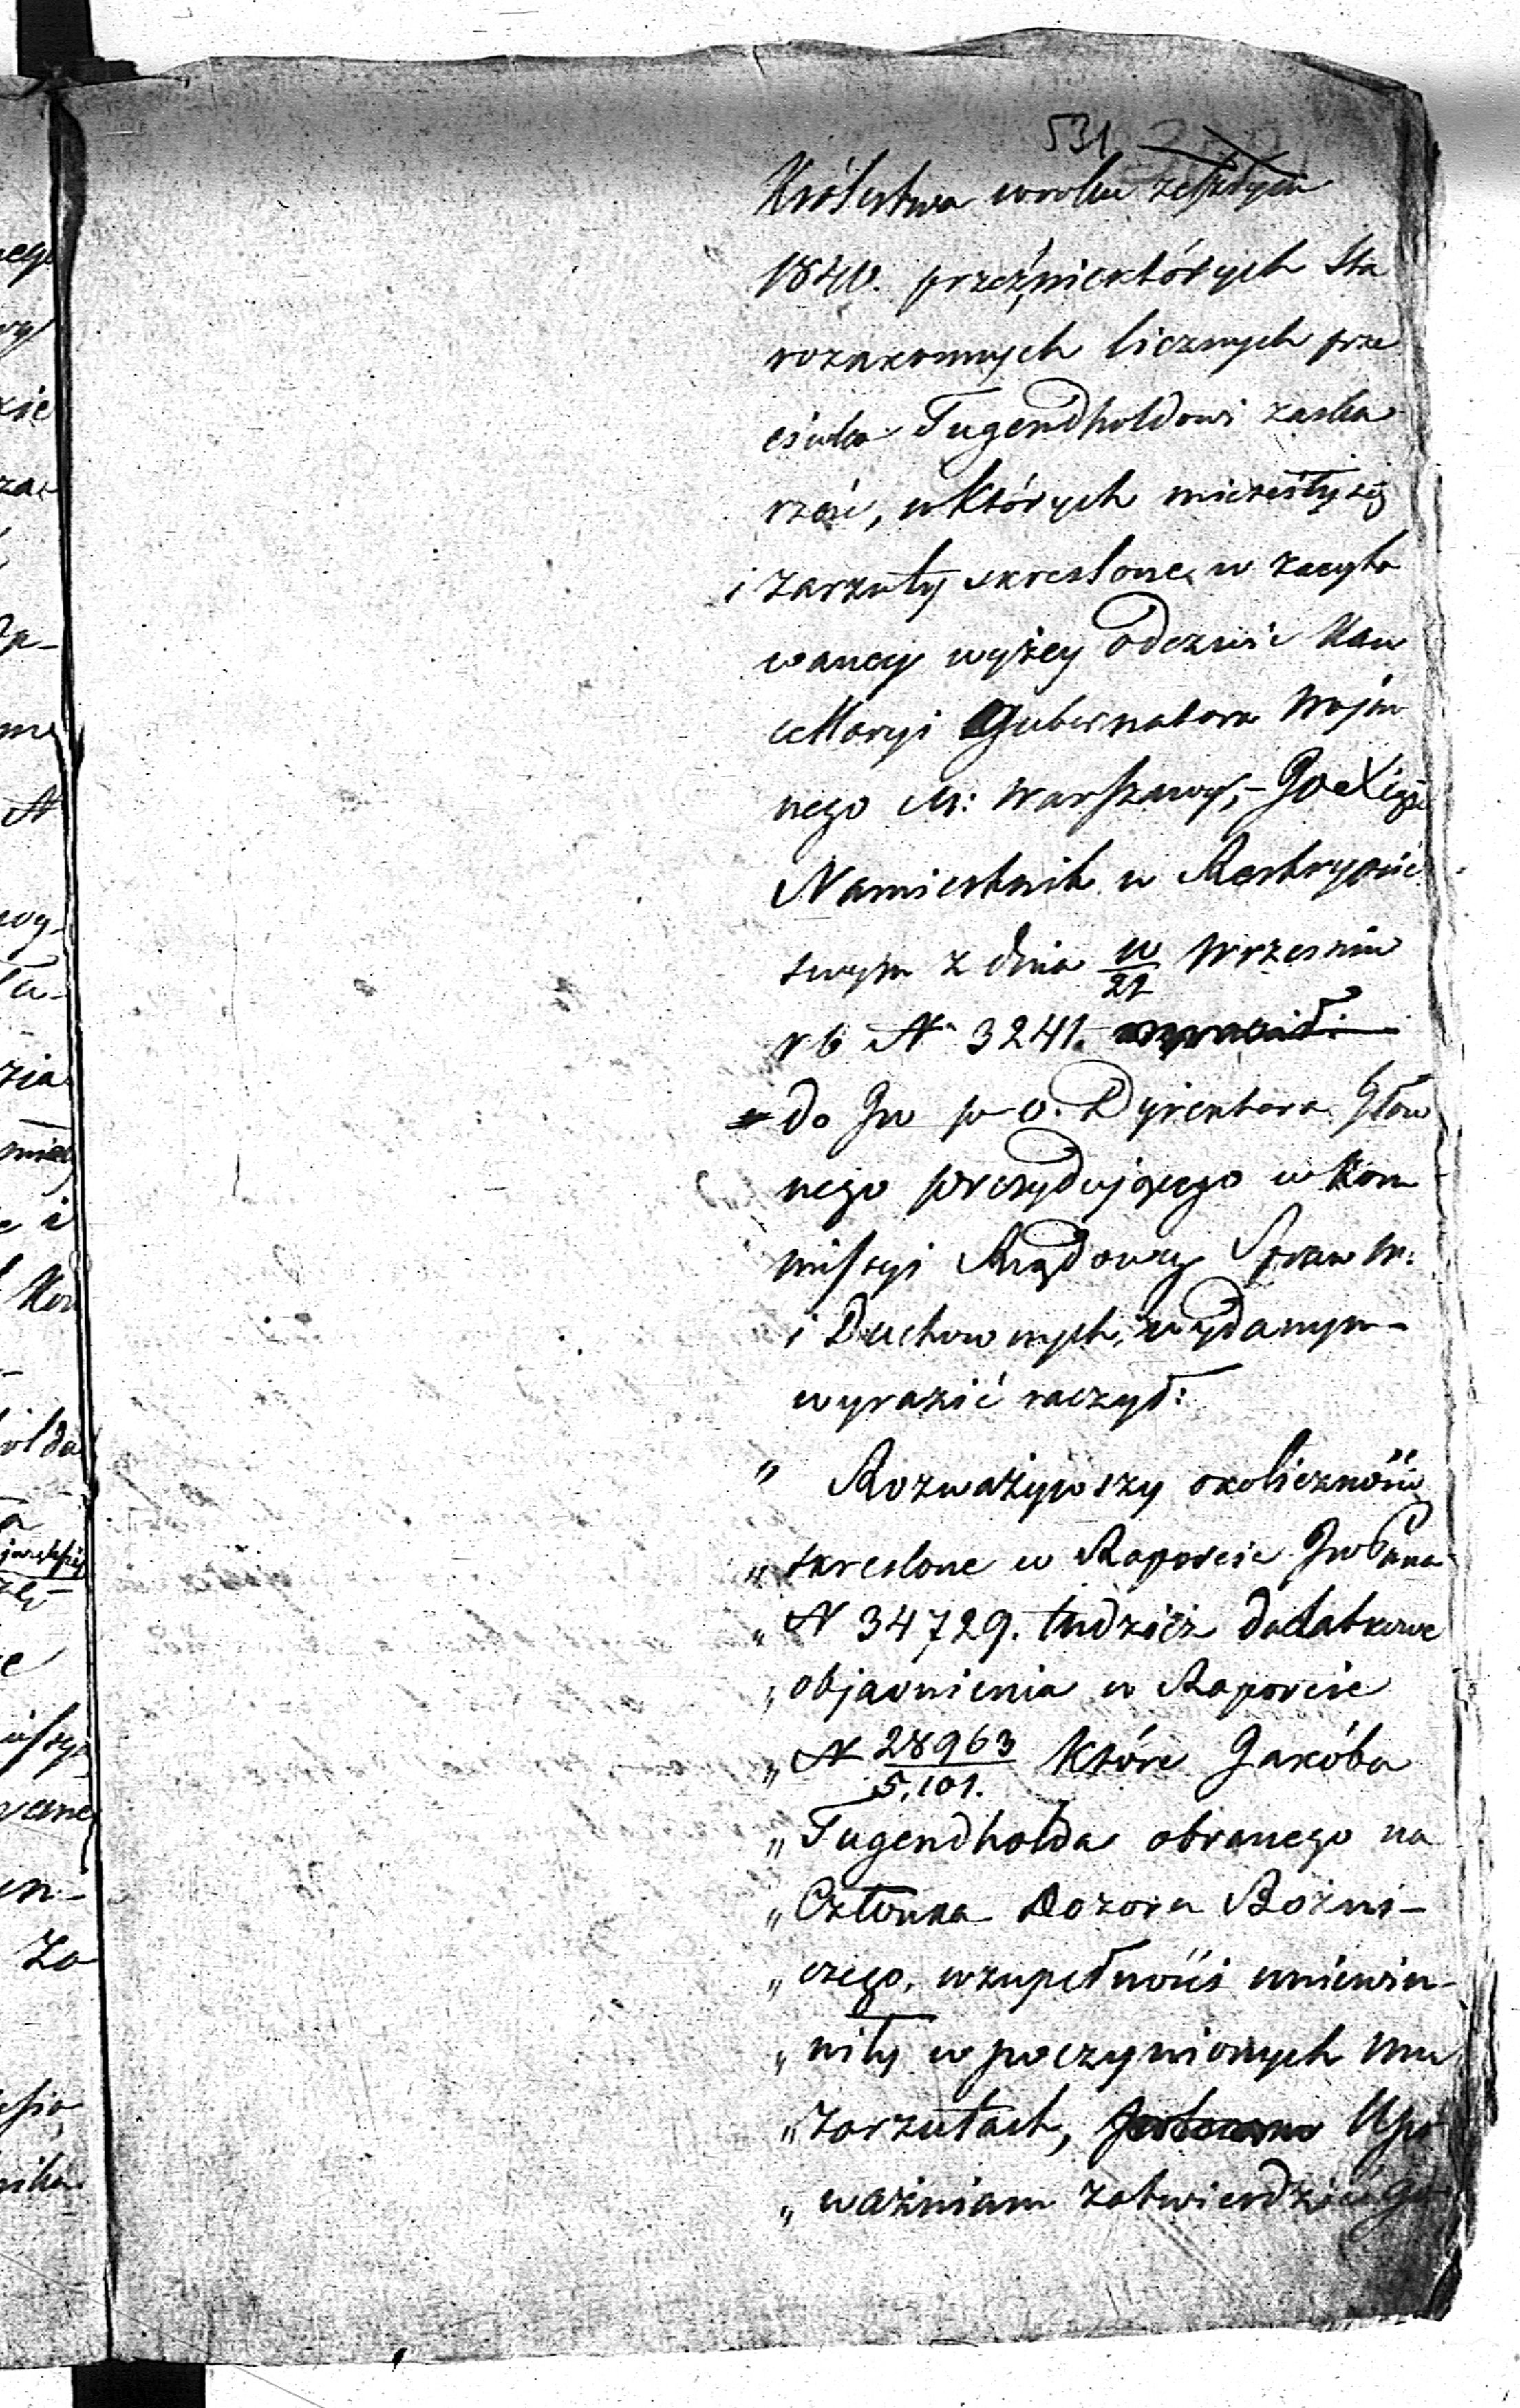 531
Królestwa w roku zeszłym
1840. przez niektórych sta
rozakonnych licznych prze
ciwko Tugendholdowi zaska
rzeń, w których mieściły się
i zarzuty skreslone w zacyto
waney wyżey odezwie Kan
cellaryi Gubernatora Wojen
nego M: Warszawy, – JO Xiąże
Namiestnik w Reskrypcie
swym z dnia 10/22 Wrzesnia
r b N 3241.
do JW p. o. Dyrektora Głów
nego prezydującego w Kom
missyi Rządowey Spraw W:
i Duchownych, wydanym
wyrazić raczył:
" Rozważywszy okoliczności
" skreslone w Raporcie JW Pana
" N 34729. tudzież dodatkowe
" objasnienia w Raporcie
" N 28963/5,101. które Jakóba
" Tugendholda obranego na
" Członka Dozoru Bożni-
" czego, w zupełności uniewin-
" niły w poczynionych mu
" zarzutach, Upo
" ważniam zatwierdzić go